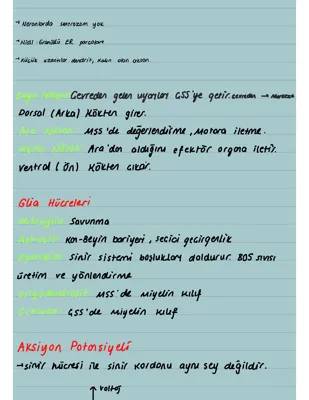 → Nöronlarda sentrozom yok
→ Nissl Granülü ER parçaları
→ Küçük uzantılar dendrit, kalın olan akson.
Duyu Nöronu Çevreden gelen uyarıları GSS'ye getir. çevreden → merkeze
Dorsal (Arka) Kökten girer.
Ara Nöron MSS'de değerlendirme, Motora iletme.
Nöron Ara'den aldığını efektör organa iletir.
Ventral (Ön) Kökten çıkar.
Glia Hücreleri
Mikroglia Savunma
Astrosit Kan-Beyin bariyeri, seçici geçirgenlik
sinir sistemi boşlukları doldurur. BOS sıvısı
üretim ve yönlendirme
Oligodendrosit MSS'de miyelin kılıf
Schwann GSS'de miyelin kılıf
Aksiyon Potansiyeli
→ sinir hücresi ile sinir kordonu aynı şey değildir.
↑ voltaj